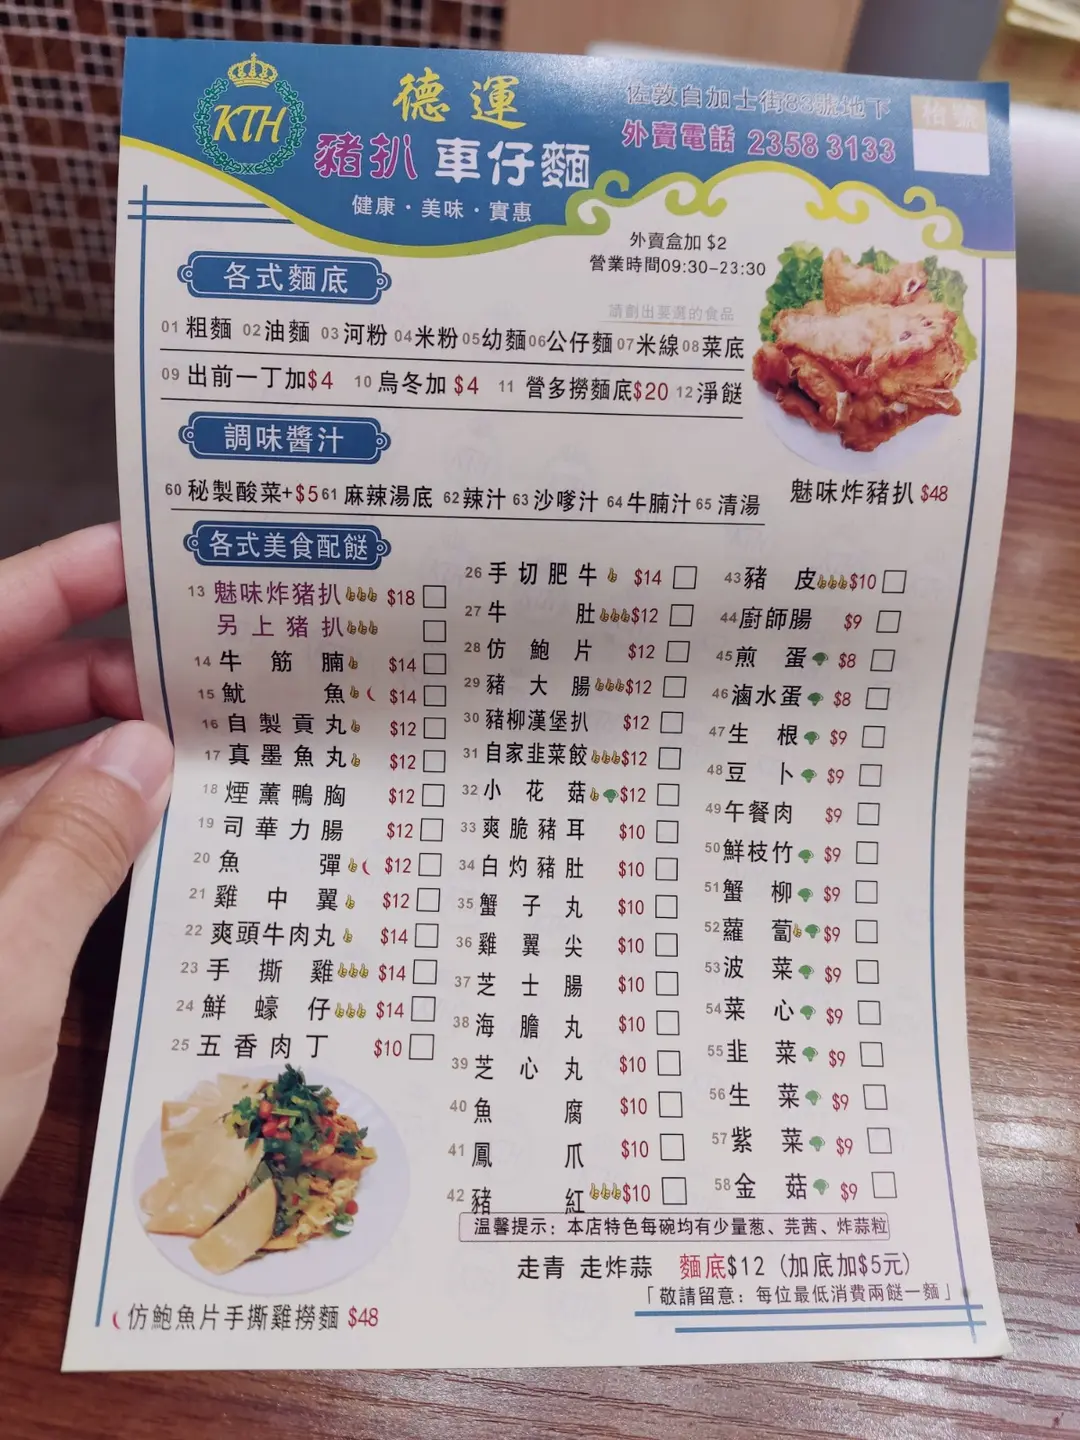 KTH
德運
豬扒 車仔麵
健康・美味・實惠
佐敦白加士街83號地下
外賣電話 2358 3133
枱號
外賣盒加 $2
營業時間09:30-23:30
請劃出要選的食品
各式麵底
01 粗麵 02 油麵 03 河粉 04 米粉 05 幼麵 06 公仔麵 07 米線 08 菜底
09 出前一丁加$4 10 烏冬加 $4 11 營多撈麵底$20 12 淨餸
調味醬汁
60 秘製酸菜+$5 61 麻辣湯底 62 辣汁 63 沙嗲汁 64 牛腩汁 65 清湯
魅味炸豬扒 $48
各式美食配餸
13 魅味炸猪扒 $18
另上猪扒
14 牛筋腩 $14
15 魷魚 $14
16 自製貢丸 $12
17 真墨魚丸 $12
18 煙薰鴨胸 $12
19 司華力腸 $12
20 魚彈 $12
21 雞中翼 $12
22 爽頭牛肉丸 $14
23 手撕雞 $14
24 鮮蠔仔 $14
25 五香肉丁 $10
26 手切肥牛 $14
27 牛肚 $12
28 仿鮑片 $12
29 豬大腸 $12
30 豬柳漢堡扒 $12
31 自家韭菜餃 $12
32 小花菇 $12
33 爽脆豬耳 $10
34 白灼豬肚 $10
35 蟹子丸 $10
36 雞翼尖 $10
37 芝士腸 $10
38 海膽丸 $10
39 芝心丸 $10
40 魚腐 $10
41 鳳爪 $10
42 豬紅 $10
43 豬皮 $10
44 廚師腸 $9
45 煎蛋 $8
46 滷水蛋 $8
47 生根 $9
48 豆卜 $9
49 午餐肉 $9
50 鮮枝竹 $9
51 蟹柳 $9
52 蘿蔔 $9
53 波菜 $9
54 菜心 $9
55 韭菜 $9
56 生菜 $9
57 紫菜 $9
58 金菇 $9
温馨提示：本店特色每碗均有少量葱、芫茜、炸蒜粒
走青 走炸蒜 麵底$12 (加底加$5元)
「敬請留意：每位最低消費兩餸一麵」
仿鮑魚片手撕雞撈麵 $48